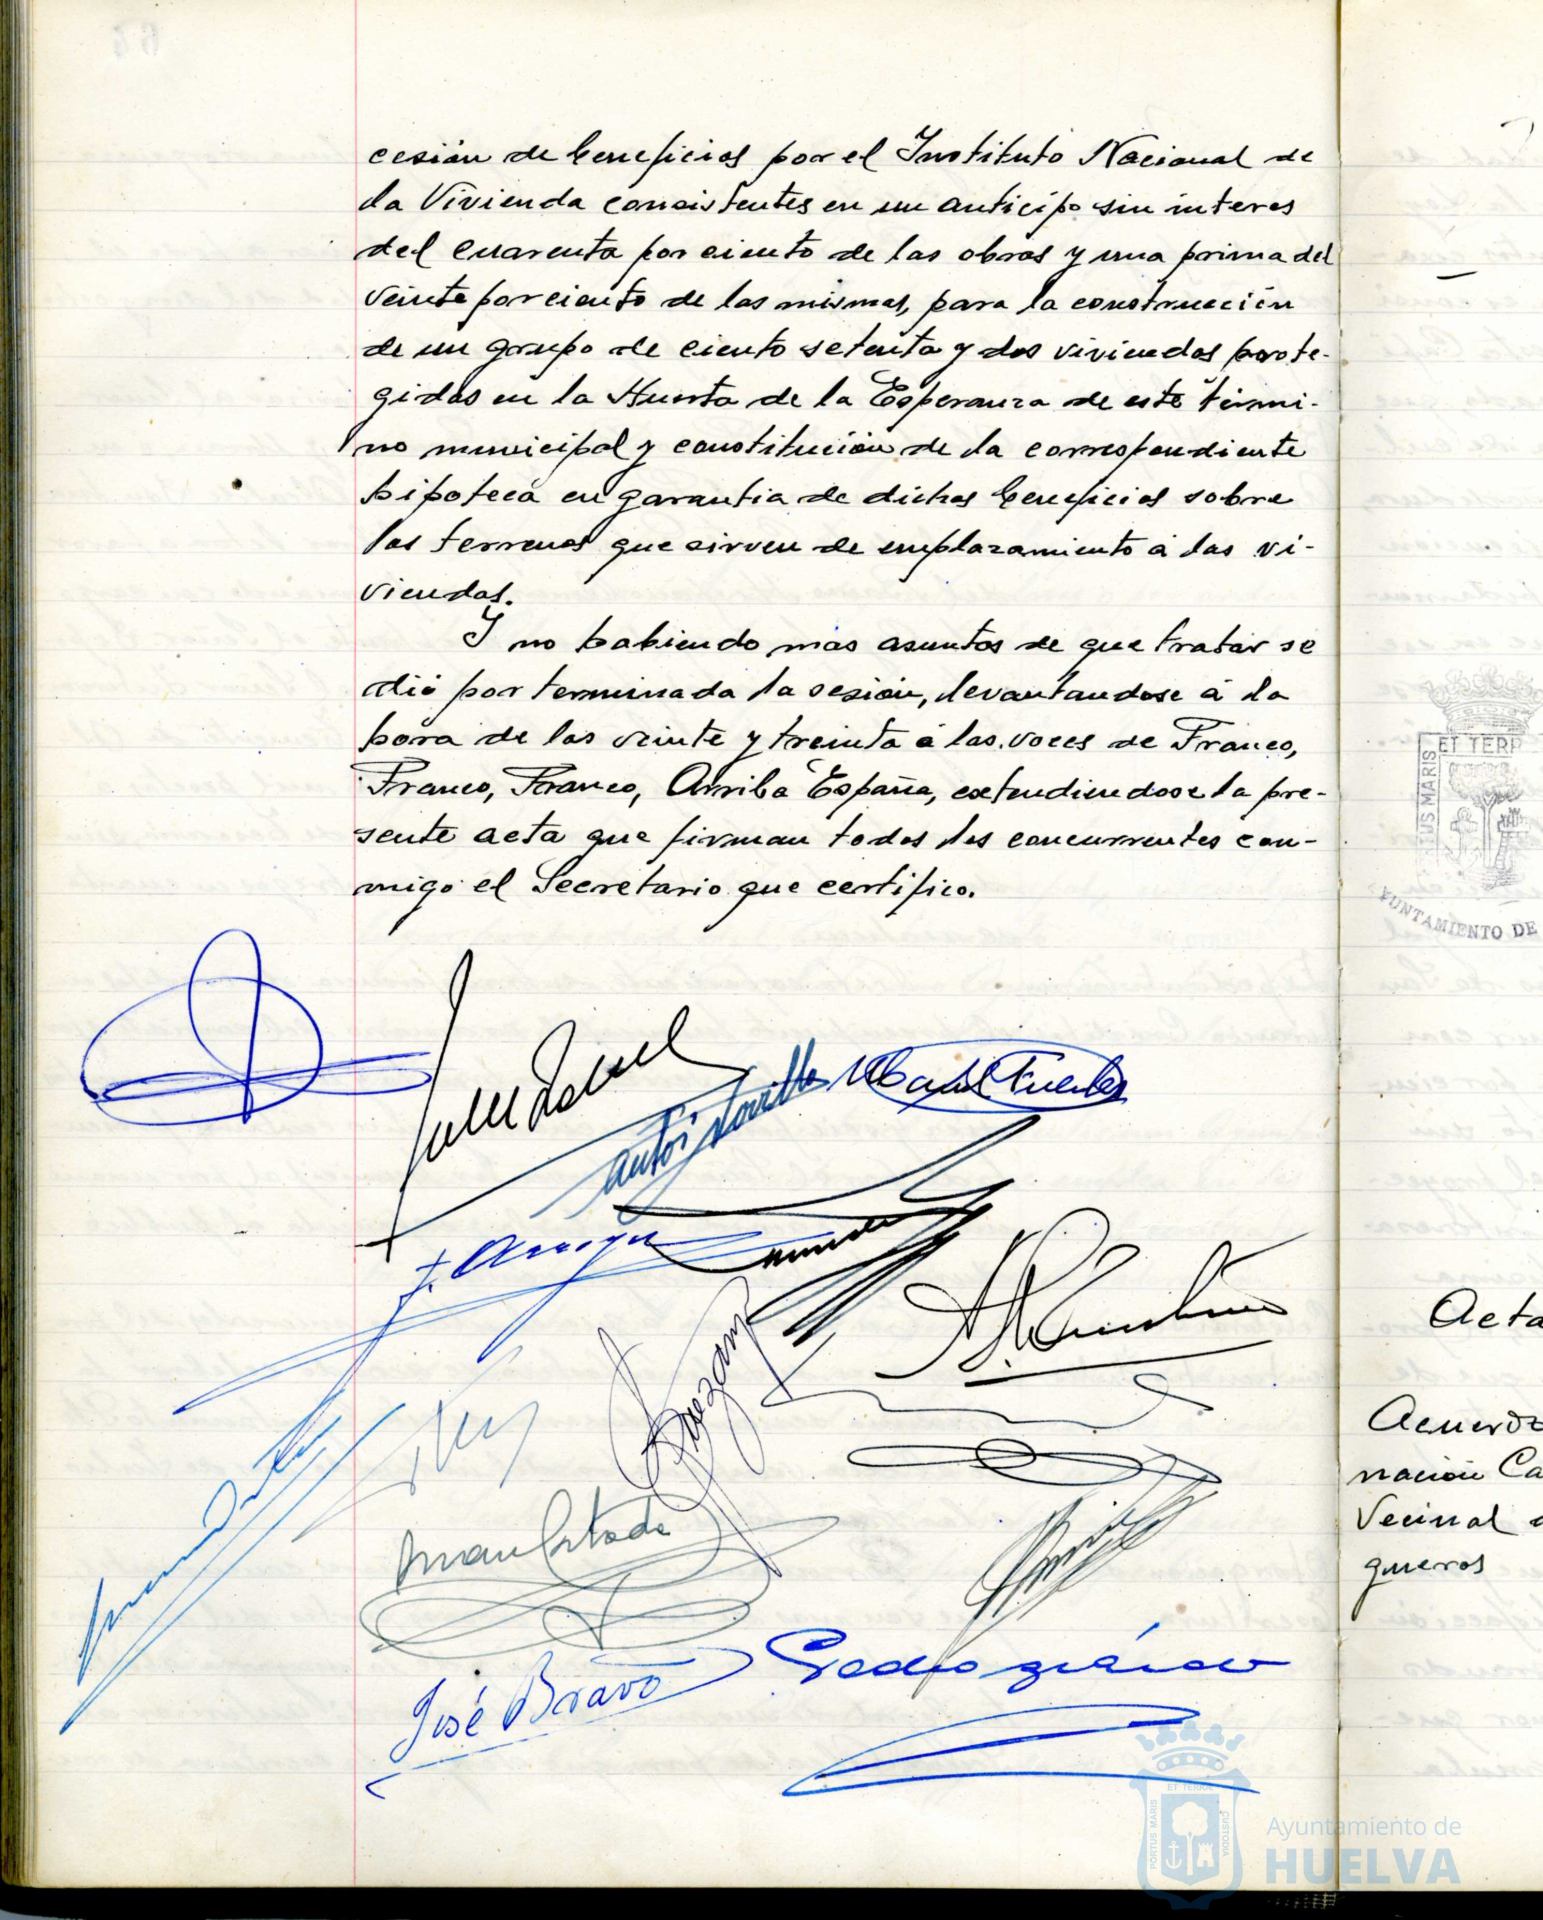 cesión de beneficios por el Instituto Nacional de
la Vivienda consistentes en un anticipo sin interes
del cuarenta por ciento de las obras y una prima del
veinte por ciento de las mismas, para la construcción
de un grupo de ciento setenta y dos viviendas prote-
gidas en la Huerta de la Esperanza de este térmi-
no municipal y constitución de la correspondiente
hipoteca en garantia de dichos beneficios sobre
los terrenos que sirven de emplazamiento á las vi-
viendas.
Y no habiendo mas asuntos de que tratar se
dió por terminada la sesión, levantandose á la
hora de las veinte y treinta á las voces de Franco,
Franco, Franco, Arriba España, extendiendose la pre-
sente acta que firman todos los concurrentes con-
migo el Secretario que certifico.
José Bravo
ET TERR
US MARIS
YUNTAMIENTO DE
Acta
Acuerdo
nación Ca
Vecinal
gueros
ET TERRA
PORTUS MARIS
CUSTODIA
Ayuntamiento de
HUELVA